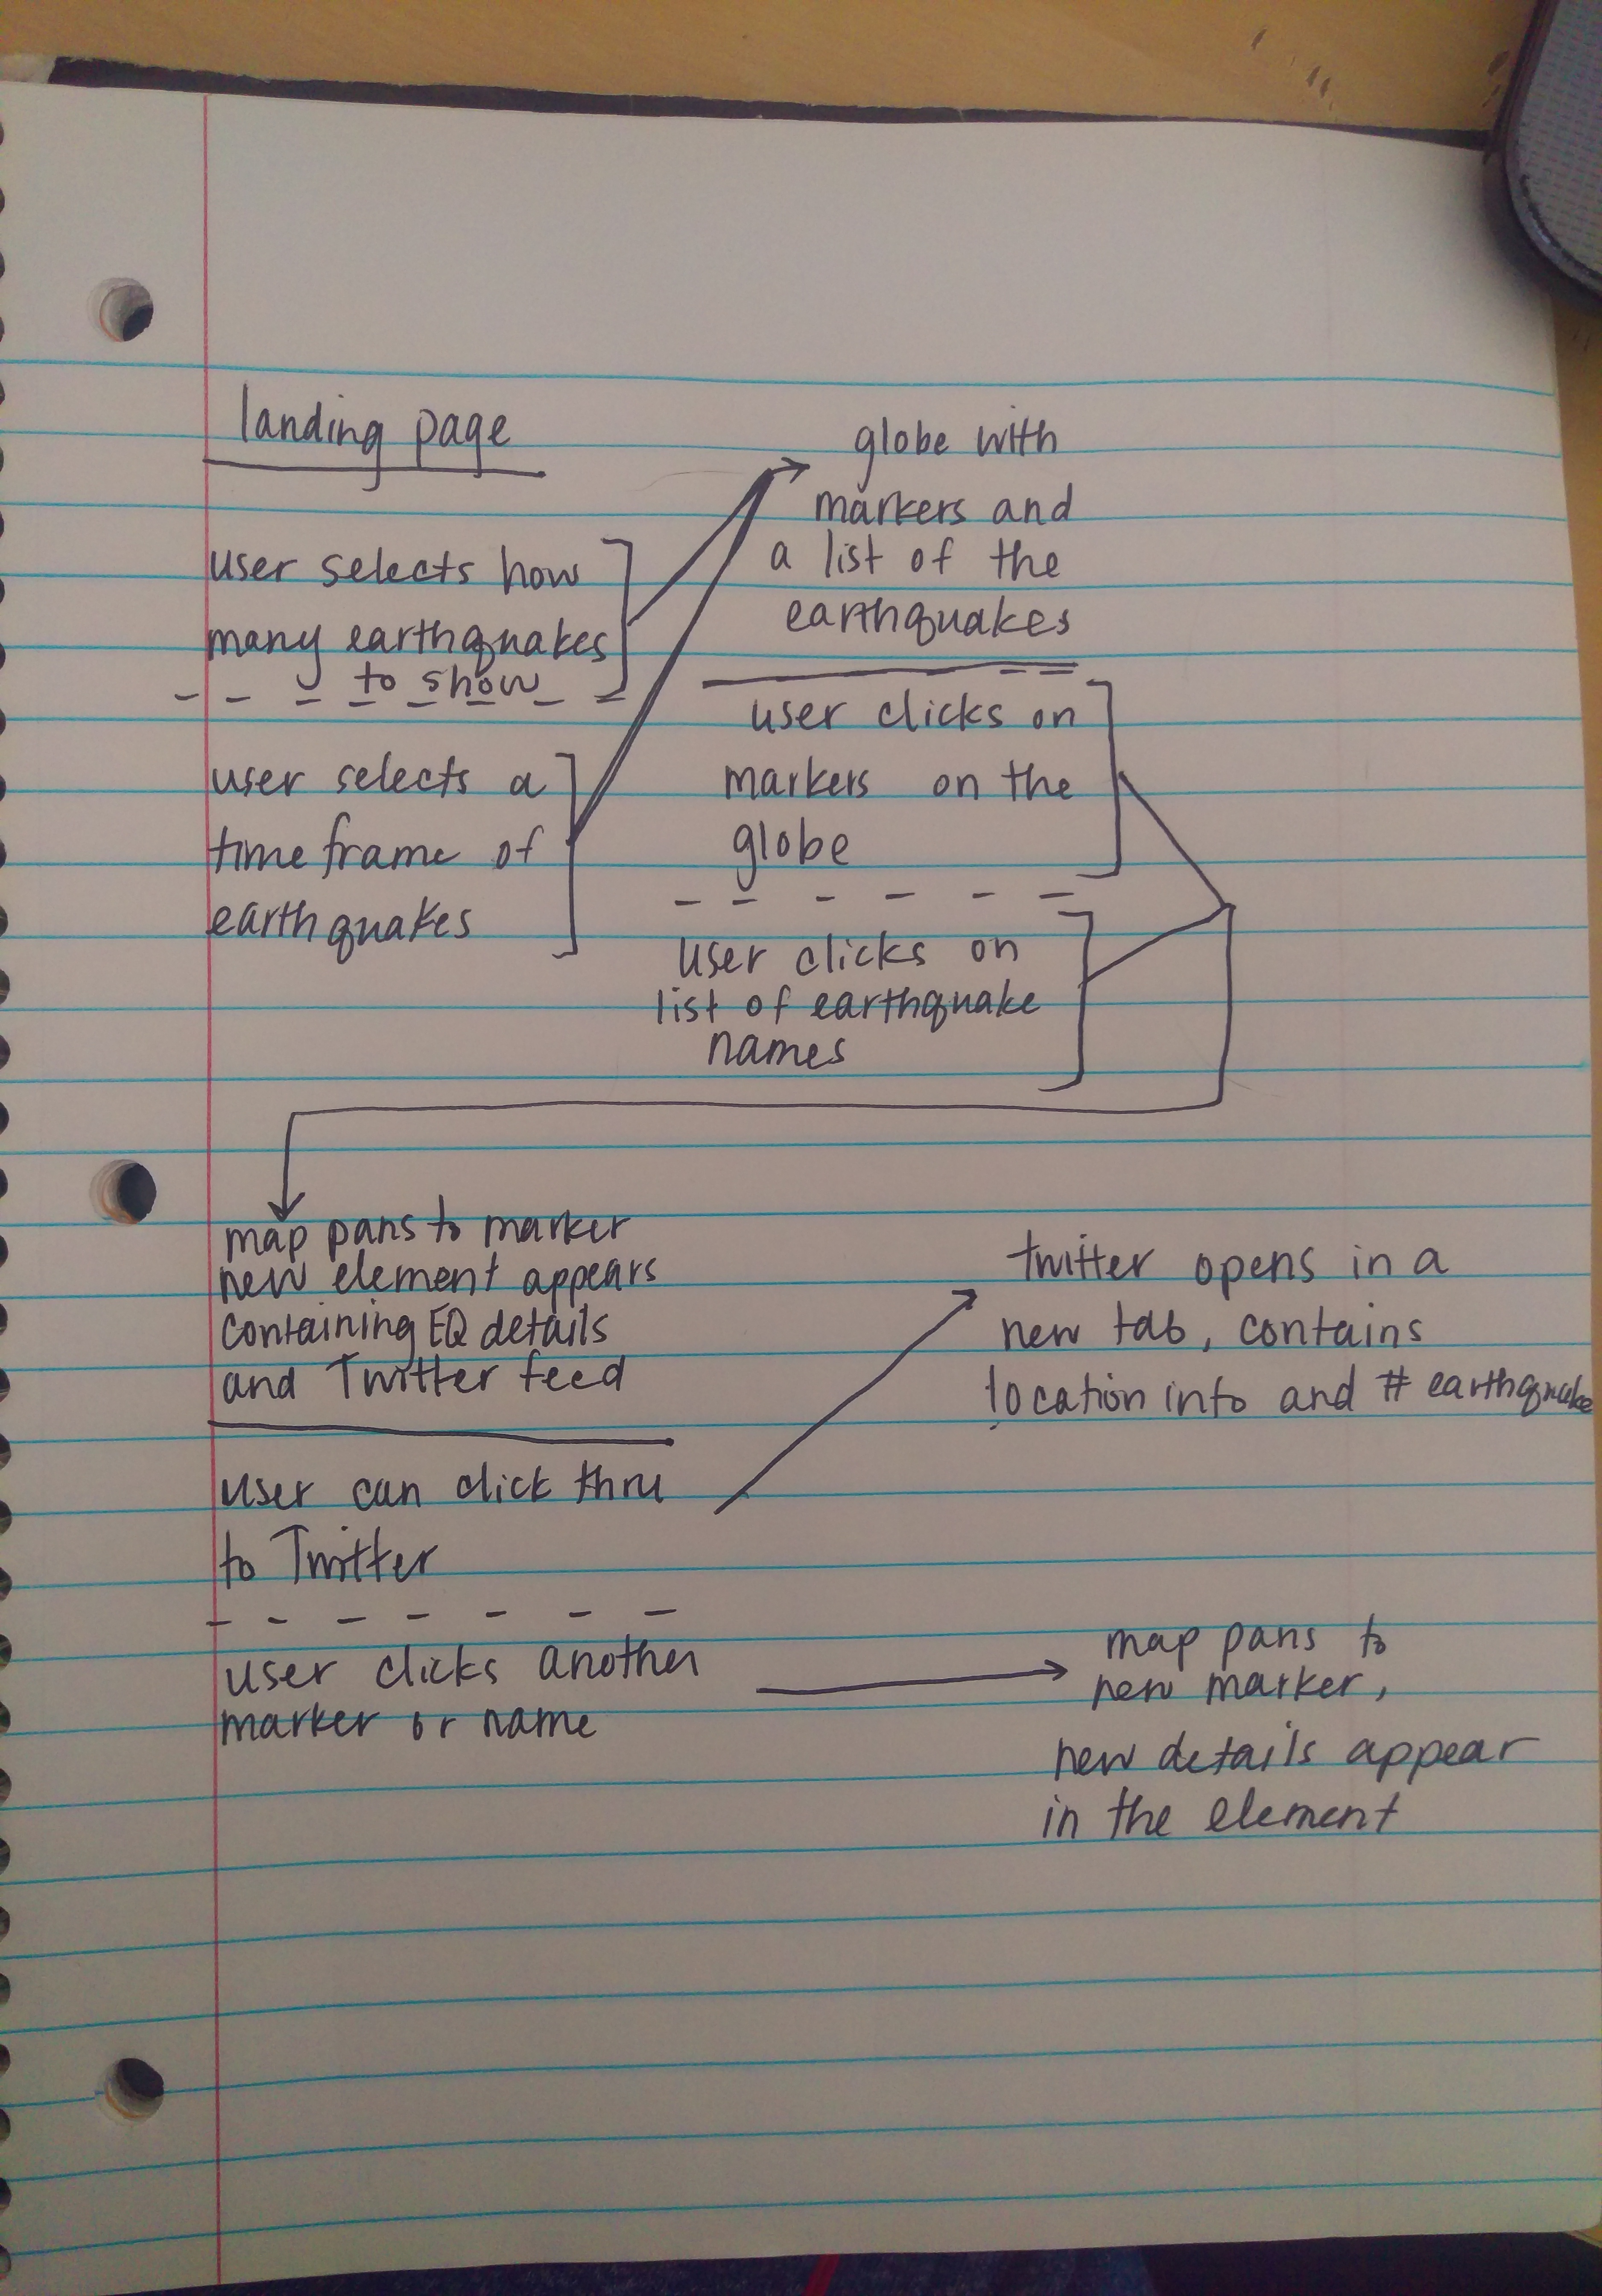 landing page
user selects how
many earthquakes
to show
user selects a
time frame of
earthquakes
globe with
markers and
a list of the
earthquakes
user clicks on
markers on the
globe
user clicks on
list of earthquake
names
map pans to marker
new element appears
containing EQ details
and Twitter feed
user can click thru
to Twitter
user clicks another
marker or name
twitter opens in a
new tab, contains
location info and # earthquake
map pans to
new marker,
new details appear
in the element